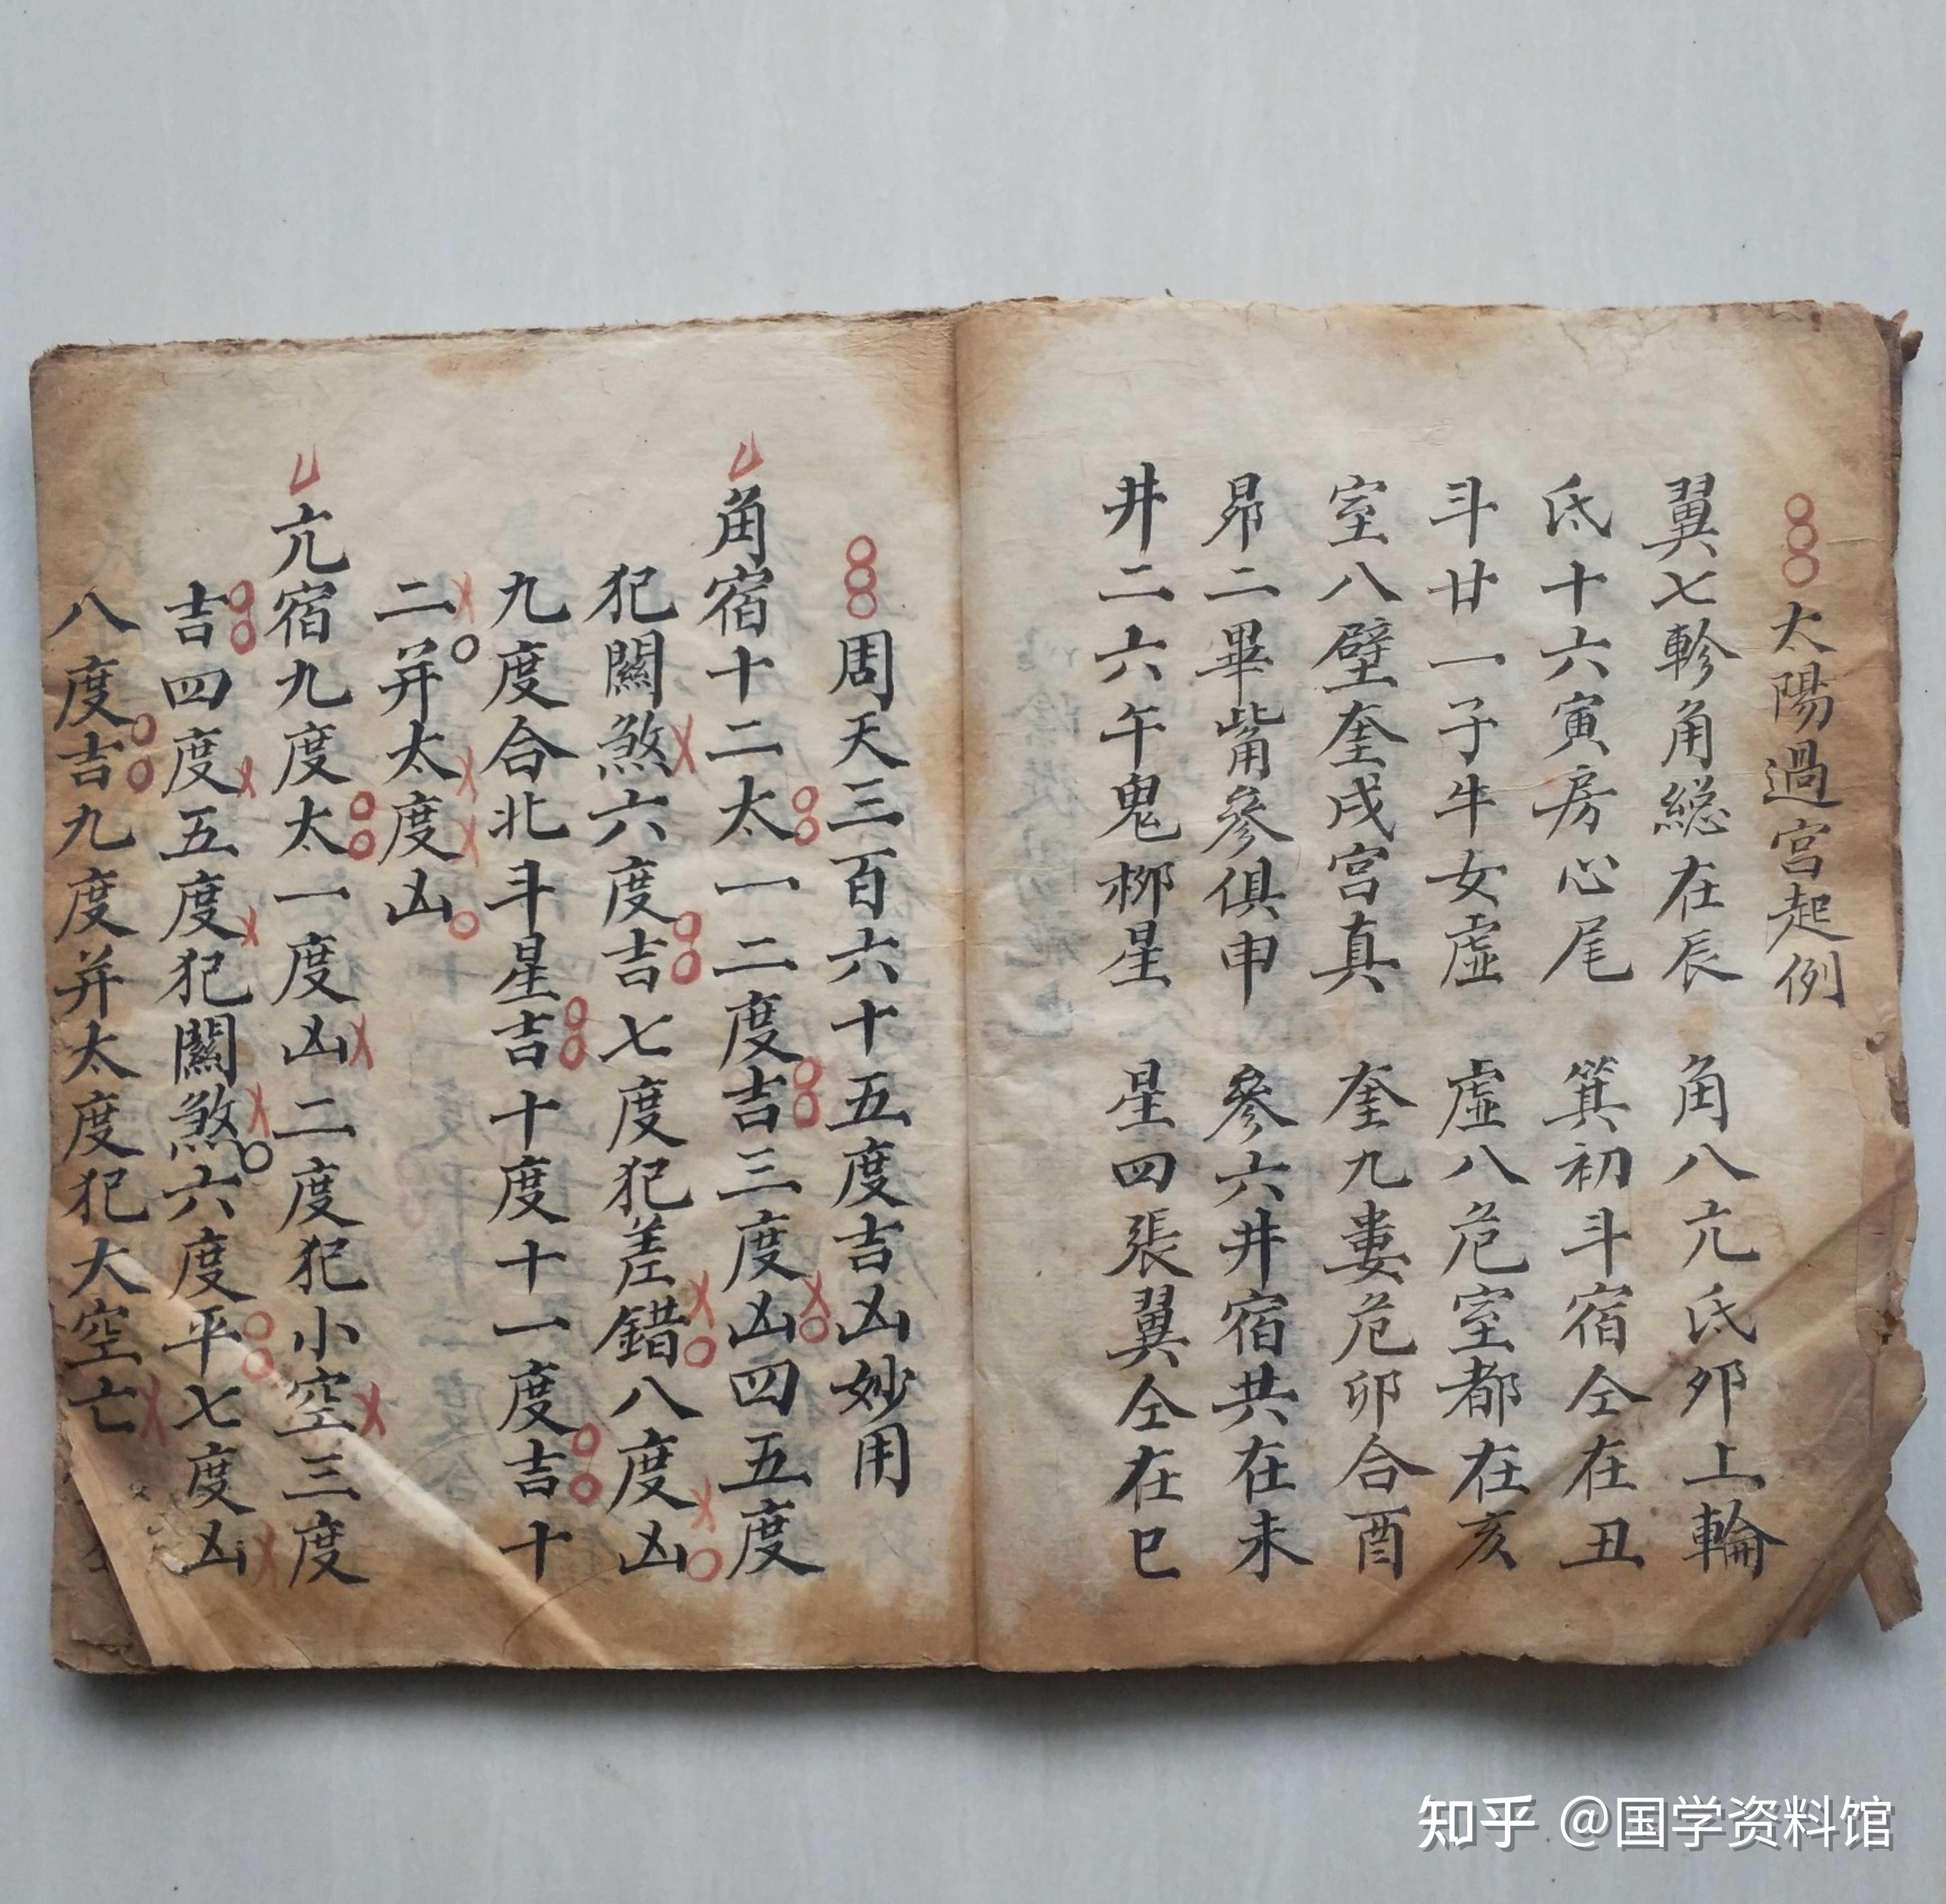 太陽過宮起例
翼七軫角総在辰 角八亢氐夘上輪
氐十六寅房心尾 箕初斗宿仝在丑
斗廿一子牛女虛 虛八危室都在亥
室八壁奎戌宮真 奎九婁危卯合酉
昴二畢觜參俱申 參六井宿共在未
井二六午鬼柳星 星四張翼仝在巳
周天三百六十五度吉凶妙用
角宿十二太一二度吉三度凶四五度
犯闗煞六度吉七度犯差錯八度凶
九度合北斗星吉十度十一度吉十
二并太度凶
亢宿九度太一度凶二度犯小空三度
吉四度五度犯闗煞六度平七度凶
八度吉九度并太度犯大空亡
知乎 @国学资料馆